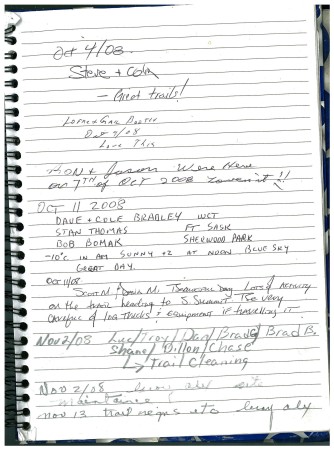 Oct 4/08.
Steve + Colin
- Great trails!
Oct 7/08
Love This
RON + Jason Were Here
on 7TH of OCT 2008 Loven it!!
OCT 11 2008
DAVE + COLE BRADLEY WCT
STAN THOMAS FT SASK
BOB BOMAK SHERWOOD PARK
-10°C IN AM SUNNY +2 AT NOON BLUE SKY
GREAT DAY.
OCT 11/08
Scott M / M. Day Lots of Activity
on the trail heading to S. Summit. Be very
careful of log trucks & equipment if travelling it.
Nov 2/08 /Troy/Dan/Brad/Brad B.
Shane/Dillon/Chase
→ Trail Cleaning
Nov 2/08
Nov 13